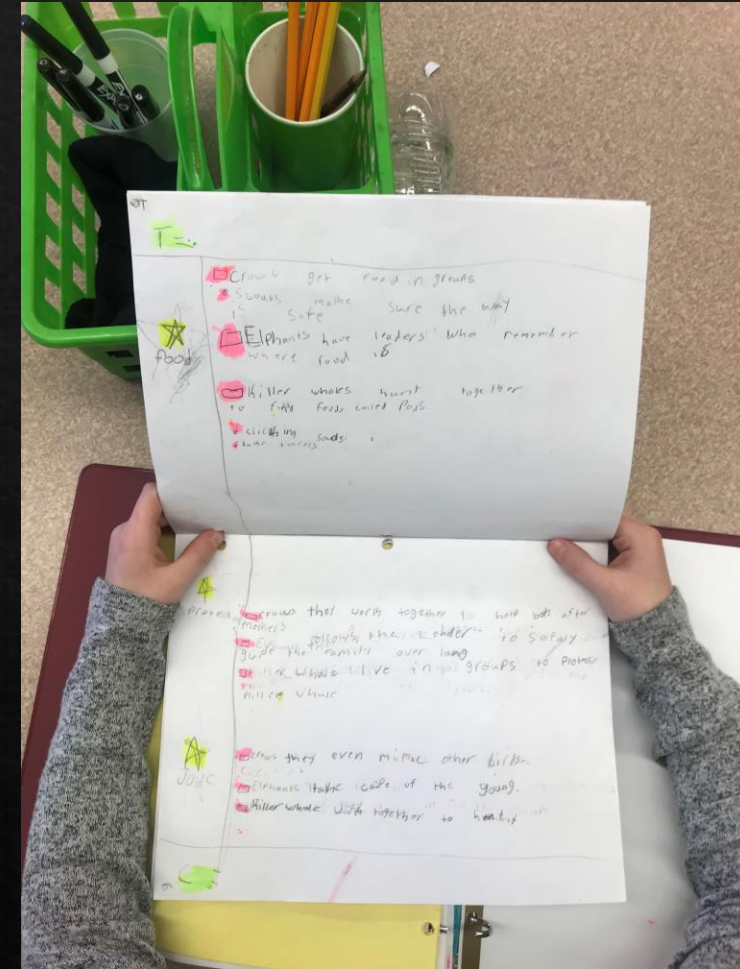 EXPO
T =.
Crows get food in groups
Scouts make sure the way
is safe
food
Elphants have leaders who remember
where food is
Killer whales hunt together
to find food called Pods
clicking souds
crows they work together to
(mother)
follows the leader to safely
guide the family over long
live in groups to
killer whale
crows they even mimic other birds.
Elephants take care of the young.
Killer whale work together to